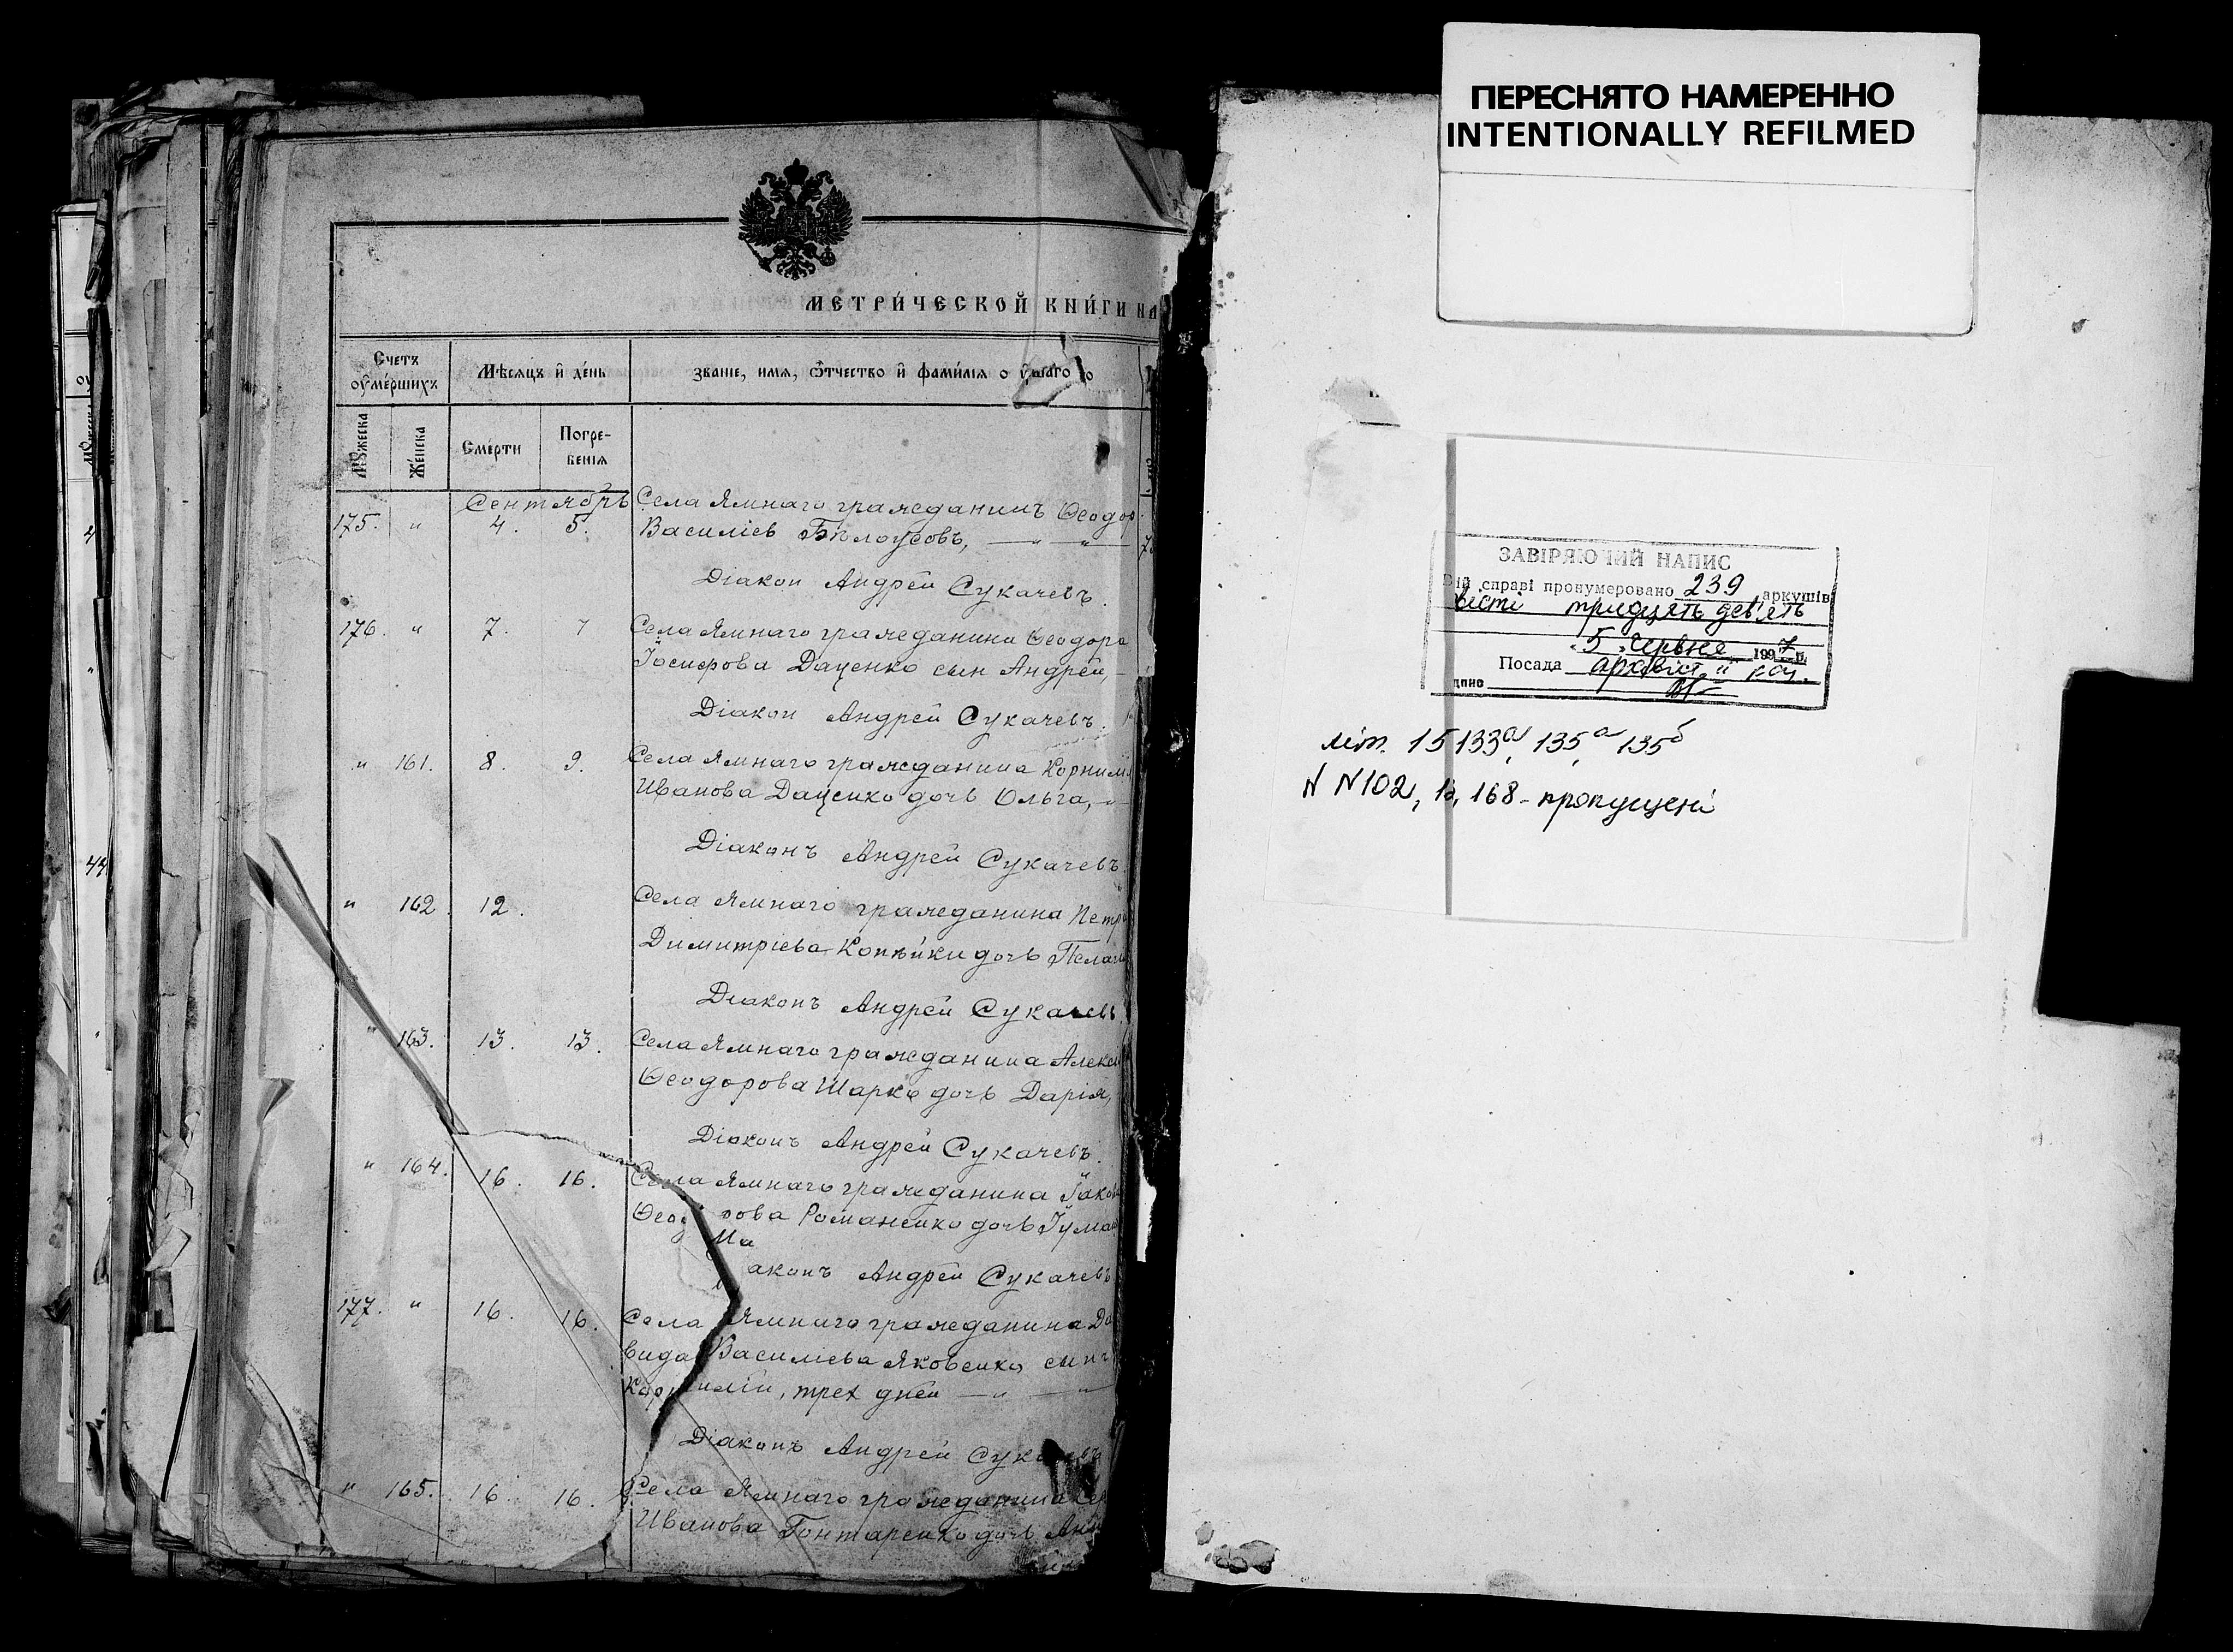 МЕТРИ́ЧЕСКОЙ КНИ́ГИ НА
Счетъ
оумершихъ
Мѣсяцъ и де́нь
званіе, имя, ѿтчество и фами́лія о
Мужеска
Же́нска
Сме́рти
Погре-
бенія
Сентябрь
175. " 4. 5.
Села Ямнаго гражданинъ Ѳеодор
Василіевъ Бѣлоусовъ, — " — " —
Діакон Андрей Сукачевъ.
176. " 7. 7
Села Ямнаго гражданина Ѳеодора
Іосифова Даценко сын Андрей, —
Діакон Андрей Сукачевъ.
" 161. 8. 9.
Села Ямнаго гражданина Корнилія
Иванова Даценко дочь Ольга, — " —
Діаконъ Андрей Сукачевъ.
" 162. 12.
Села Ямнаго гражданина Петра
Димитріева Копѣйки дочь Пелагі
Діаконъ Андрей Сукачевъ.
" 163. 13. 13.
Села Ямнаго гражданина Алекс
Ѳеодорова Шарко дочь Дарія,
Діаконъ Андрей Сукачевъ.
" 164. 16. 16.
Села Ямнаго гражданина Іаков
Ѳеод рова Романенко дочь
аконъ Андрей Сукачевъ
177. " 16. 16.
Села Ямнаго гражданина Да
вида Василіева Яковенко сынъ
Корнилій, трех дней — " — "
Діаконъ Андрей Сукачевъ
" 165. 16. 16.
Села Ямнаго гражданина
Иванова Гонтаренко дочь Анн
44
ПЕРЕСНЯТО НАМЕРЕННО
INTENTIONALLY REFILMED
ЗАВІРЯЮЧИЙ НАПИС
справі пронумеровано 239 аркушів
вісті тридцять дев'ять
"5" червня 1997 р.
Посада архівіст
дпис
літ. 15 133а, 135а, 135б
N N102, 168 - пропущені